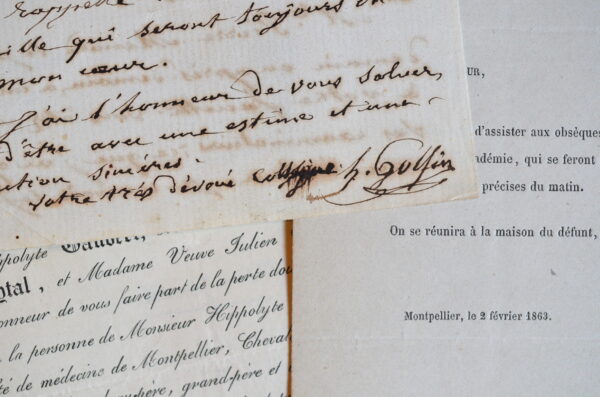 rappelle
ille qui seront toujours en
mon cœur.
J'ai l'honneur de vous saluer,
d'être avec une estime et une
ution sincères
votre très dévoué collègue h. Golfin
UR,
d'assister aux obsèques
adémie, qui se feront
précises du matin.
On se réunira à la maison du défunt,
Montpellier, le 2 février 1863.
ppolyte
tal, et Madame Veuve Julien
onneur de vous faire part de la perte dou
la personne de Monsieur Hippolyte
té de médecine de Montpellier, Cheval
père, grand-père et